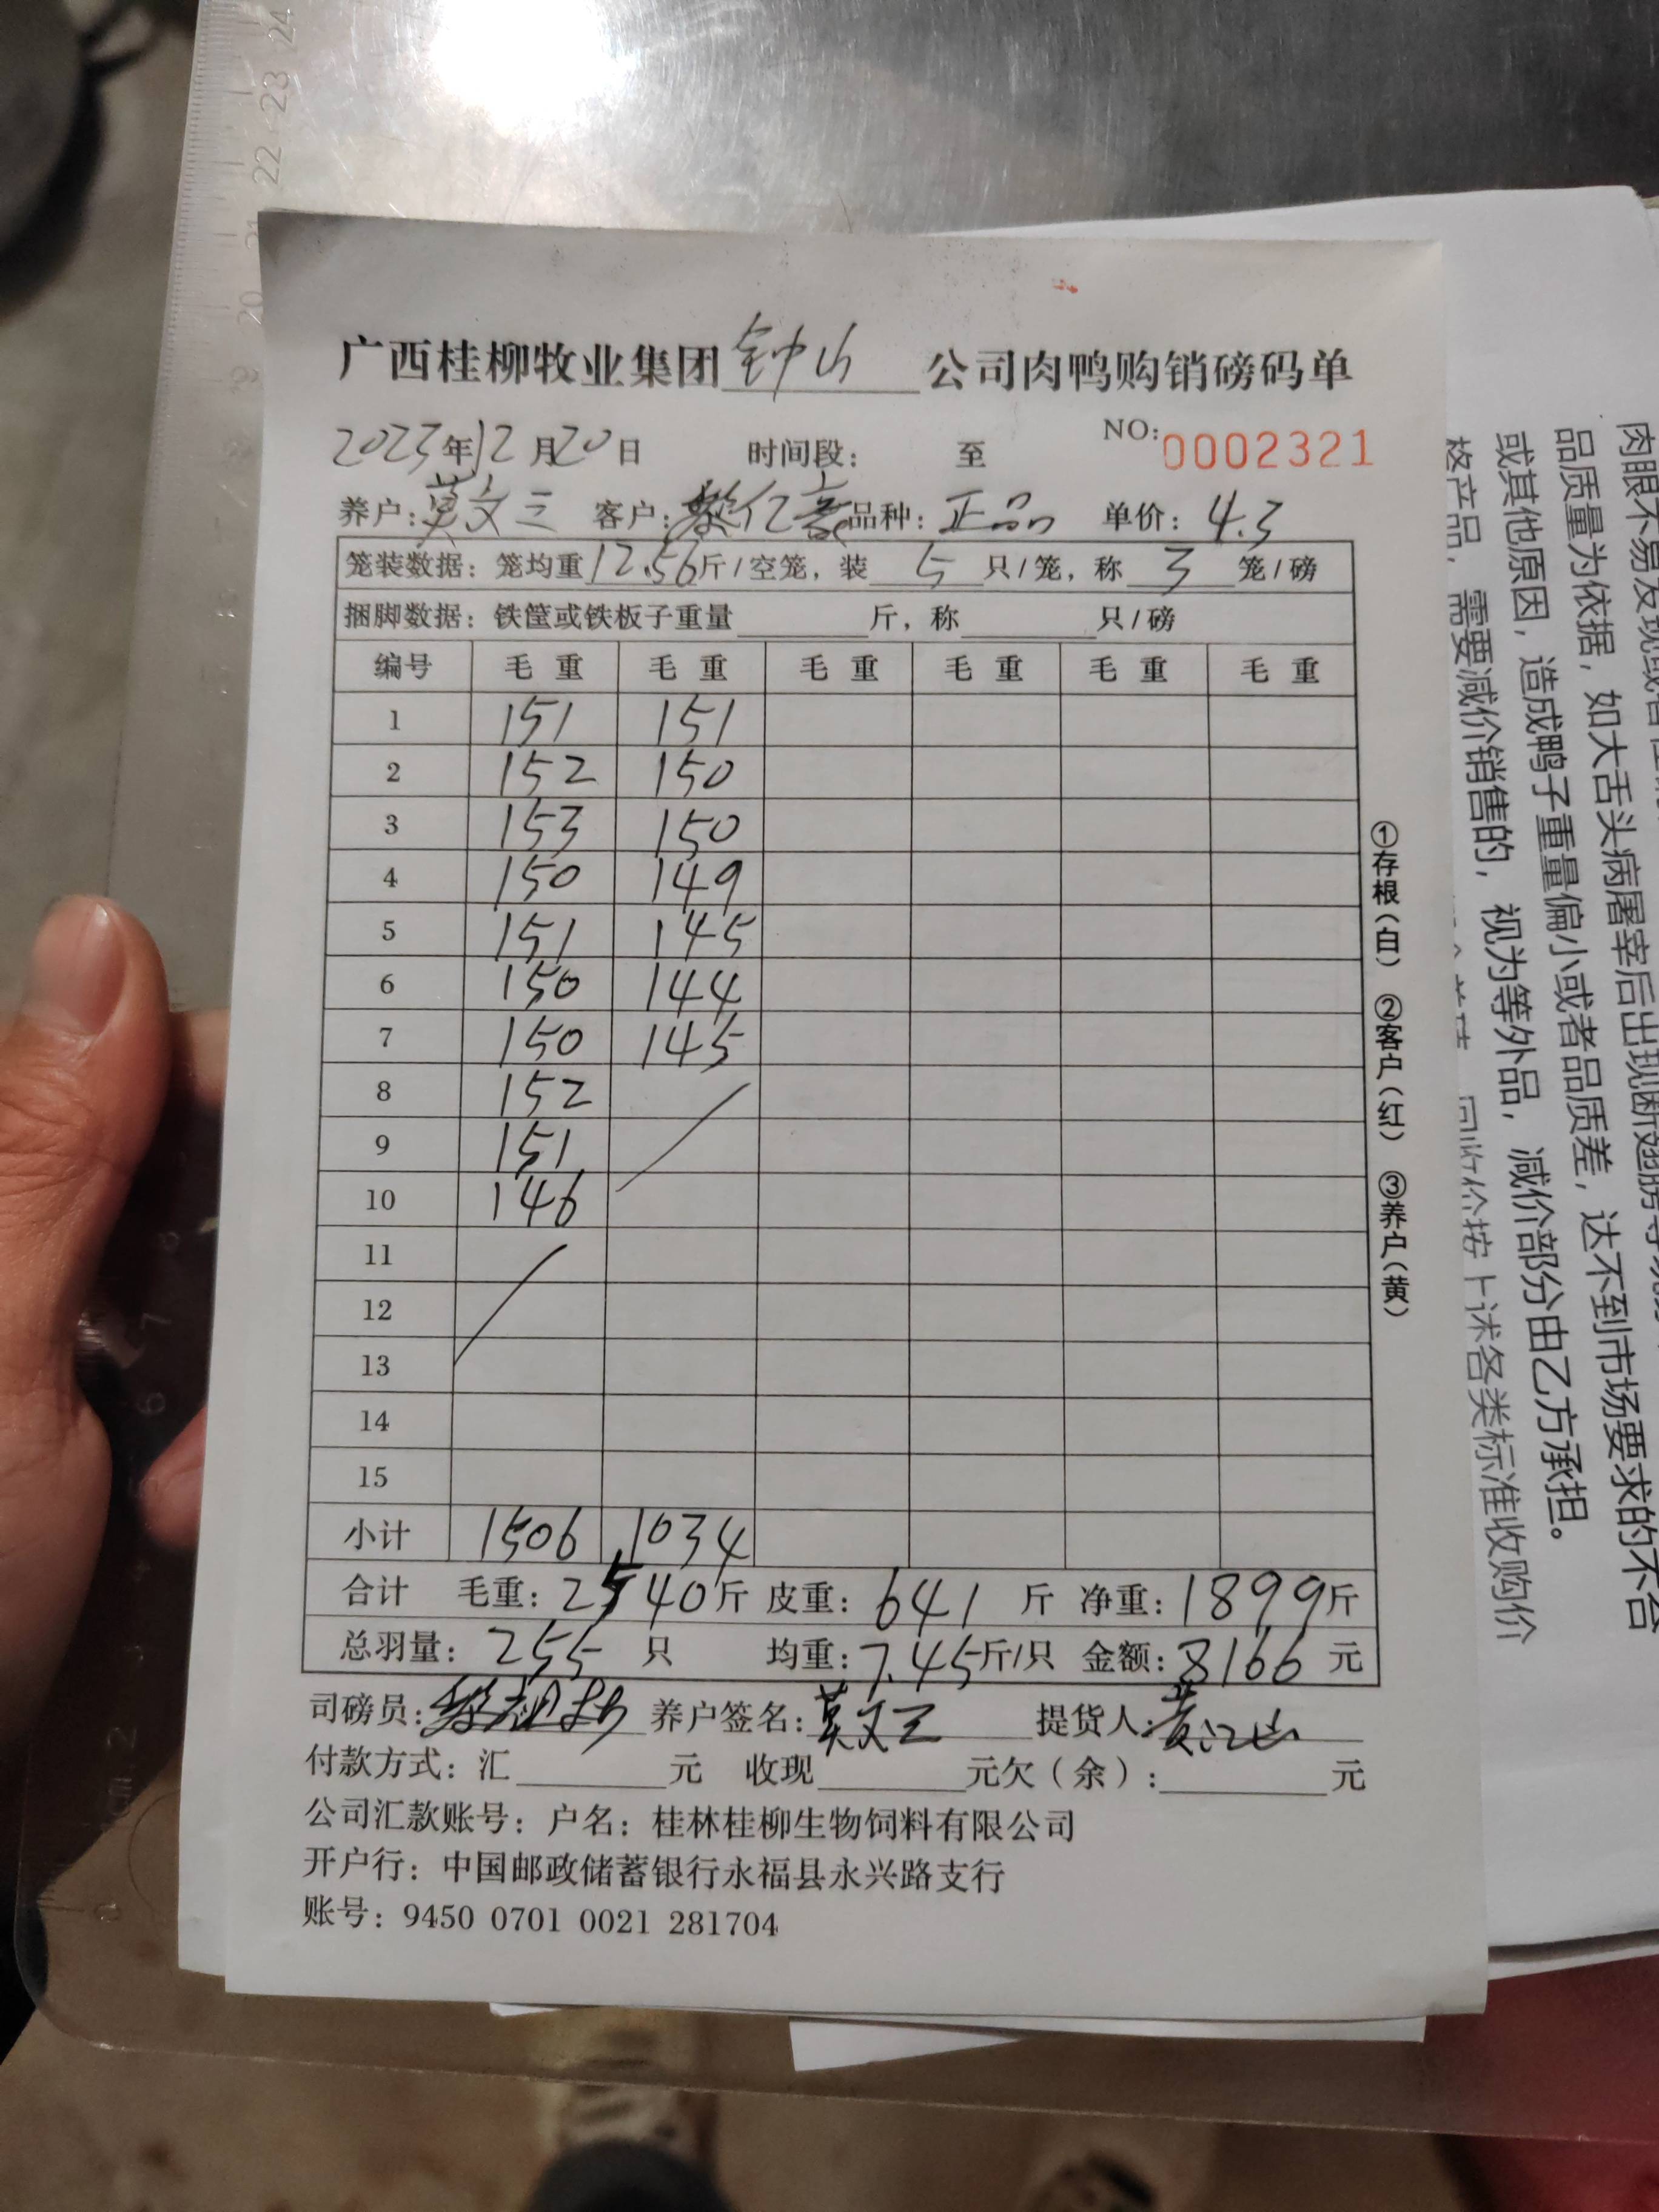 广西桂柳牧业集团 钟山 公司肉鸭购销磅码单
2023年12月20日 时间段： 至 NO:0002321
养户:莫文三 客户: 品种:正品 单价:4.3
笼装数据：笼均重12.56斤/空笼，装 5 只/笼，称 3 笼/磅
捆脚数据：铁筐或铁板子重量 斤，称 只/磅
编号 毛重 毛重 毛重 毛重 毛重 毛重
1 151 151
2 152 150
3 153 150
4 150 149
5 151 145
6 150 144
7 150 145
8 152
9 151
10 146
11
12
13
14
15
小计 1506 1034
合计 毛重：2540斤 皮重：641 斤 净重：1899斤
总羽量：255 只 均重：7.45斤/只 金额：8166 元
司磅员: 养户签名:莫文三 提货人:黄江山
付款方式：汇 元 收现 元欠（余）: 元
公司汇款账号：户名：桂林桂柳生物饲料有限公司
开户行：中国邮政储蓄银行永福县永兴路支行
账号：9450 0701 0021 281704
①存根(白) ②客户(红) ③养户(黄)
品质量为依据，如大舌头病屠宰后出现断翅膀等
或其他原因，造成鸭子重量偏小或者品质差，达不到市场要求的不合
格产品，需要减价销售的，视为等外品，减价部分由乙方承担。
回收价按上述各类标准收购价
24
23
22
21
20